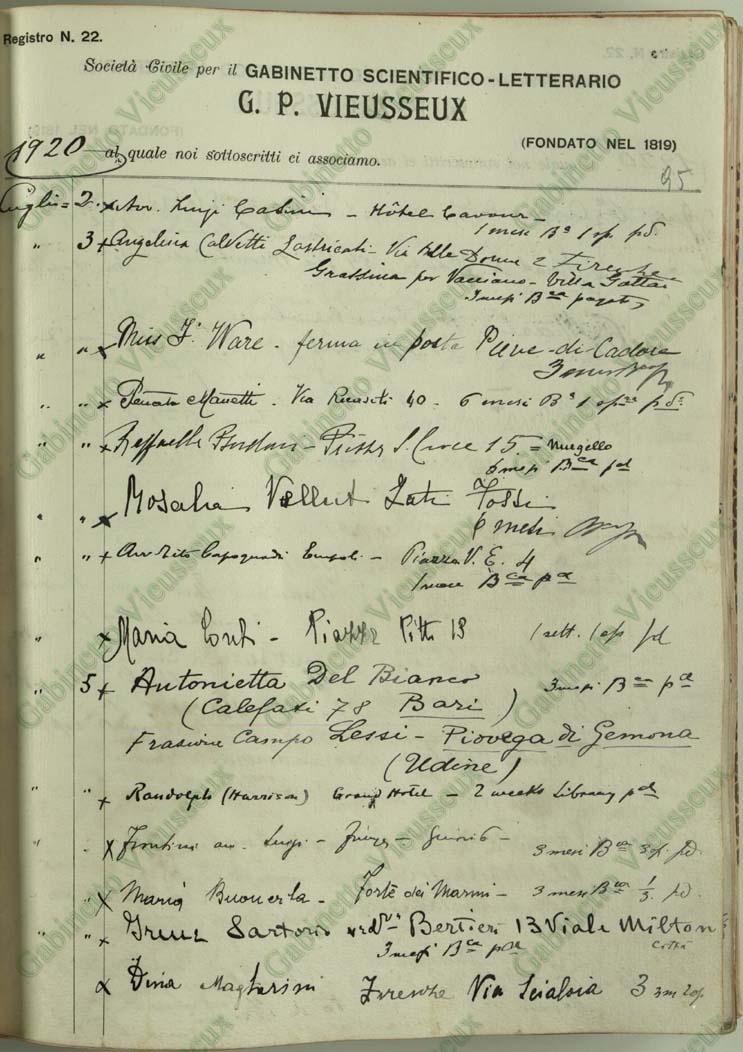 Registro N. 22.
Società Civile per il GABINETTO SCIENTIFICO-LETTERARIO
G. P. VIEUSSEUX
(FONDATO NEL 1819)
1920 al quale noi sottoscritti ci associamo.
95
Luglio = 2. x Avv. Luigi Casini - Hôtel Cavour -
1 mese Bª 1 op. pd.
" 3 x Angelina Calvetti Lastricati - Via delle Donne 2 Firenze
Grassina per Vacciano - Villa Gattai
3 mesi Bca pagato
" " x Miss F. Ware - ferma in posta Pieve-di-Cadore
3 mesi
" " x Renato Manetti. Via Ricasoli 40 - 6 mesi Bª 1 pd
" " x Raffaello - Piazza S. Croce 15 = Mugello
6 mesi Bca pd
" " x Rosalia Tossi
6 mesi
" " x Avv Empoli - Piazza V. E. 4
1 mese Bca pd
" x Maria Conti - Piazza Pitti 18 1 sett. 1 op pd
" 5 x Antonietta Del Bianco 3 mesi Bca pd
(Calefati 78 Bari)
Frazione Campo Lessi - Piovega di Gemona
(Udine)
" " x Randolph (Harrison) Grand Hotel - 2 weeks Library pd
" " x avv. Luigi - 3 mesi Bca 3 op. pd.
" " x Maria - Forte dei Marmi - 3 mesi Bca pd.
" " x Irene Sartorio Bertieri 13 Viale Milton
città
3 mesi Bca pd
x Dina Magherini Firenze Via Scialoia 3 3m 2 op.
Gabinetto Vieusseux